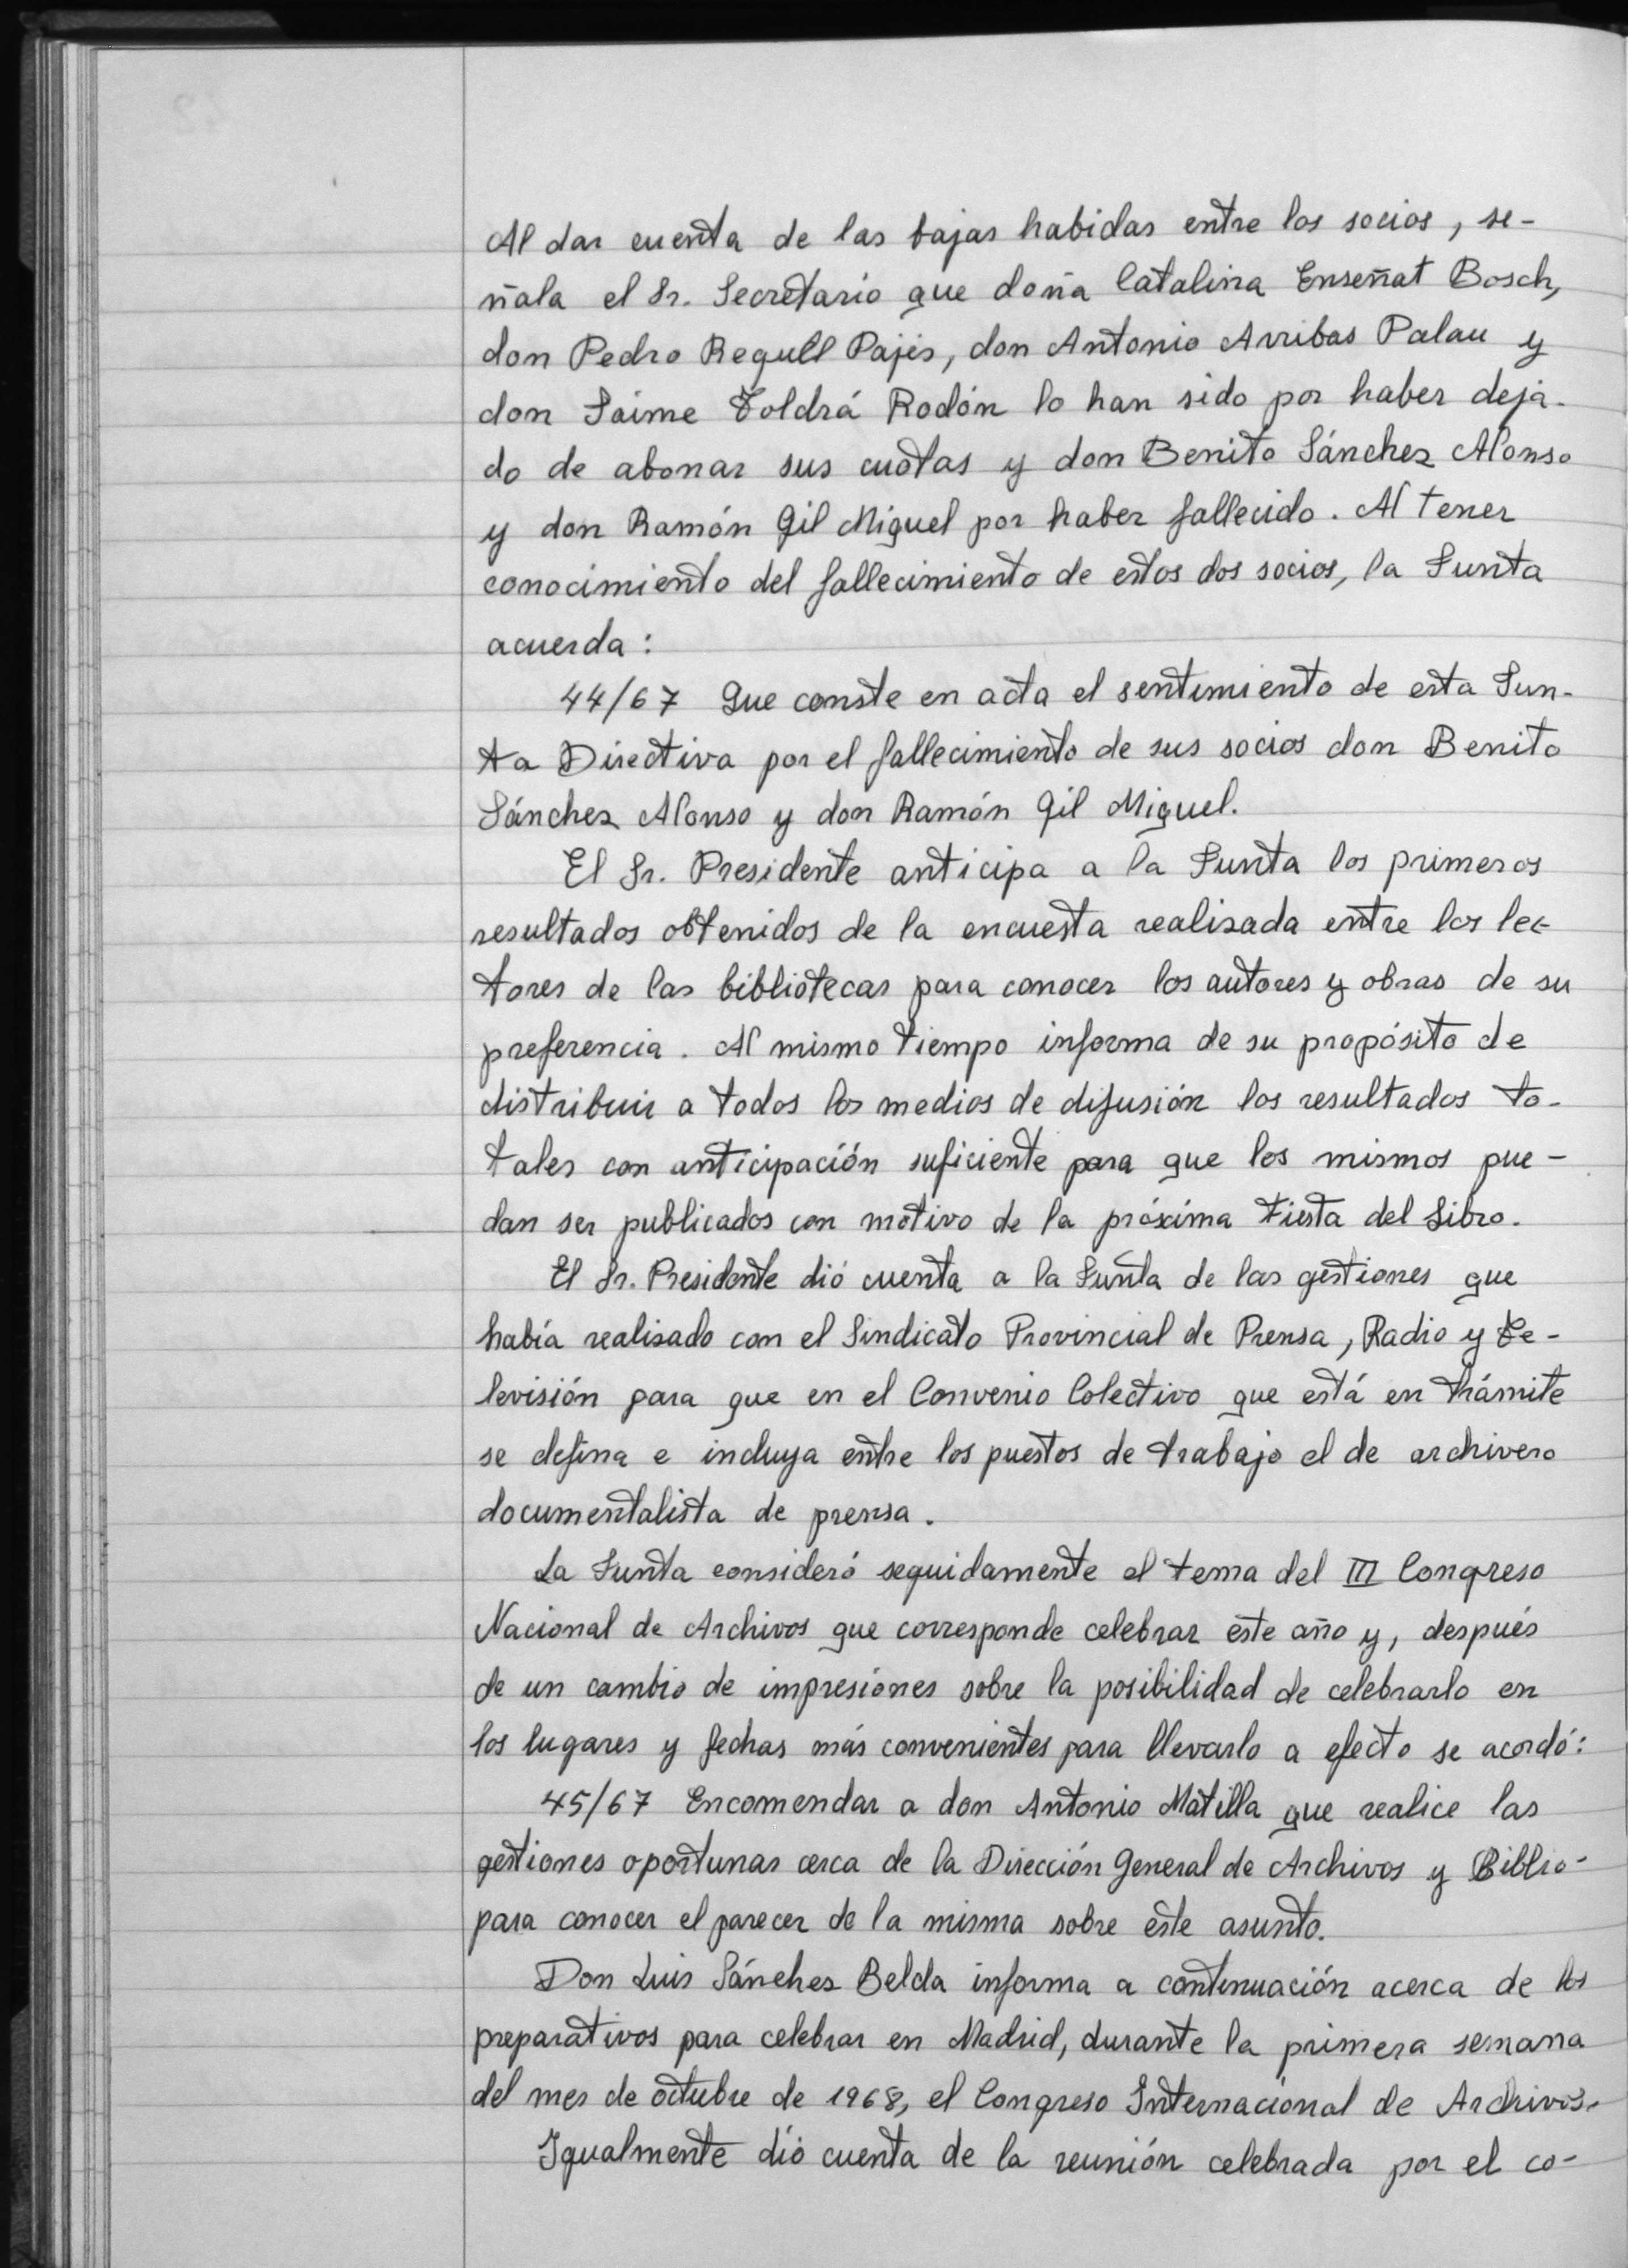 Al dar cuenta de las bajas habidas entre los socios, se-
ñala el Sr. Secretario que doña Catalina Enseñat Bosch,
don Pedro Regull Pajés, don Antonio Arribas Palau y
don Jaime Toldrá Rodón lo han sido por haber deja-
do de abonar sus cuotas y don Benito Sánchez Alonso
y don Ramón Gil Miguel por haber fallecido. Al tener
conocimiento del fallecimiento de estos dos socios, la Junta
acuerda:
44/67 Que conste en acta el sentimiento de esta Jun-
ta Directiva por el fallecimiento de sus socios don Benito
Sánchez Alonso y don Ramón Gil Miguel.
El Sr. Presidente anticipa a la Junta los primeros
resultados obtenidos de la encuesta realizada entre los lec-
tores de las bibliotecas para conocer los autores y obras de su
preferencia. Al mismo tiempo informa de su propósito de
distribuir a todos los medios de difusión los resultados to-
tales con anticipación suficiente para que los mismos pue-
dan ser publicados con motivo de la próxima Fiesta del Libro.
El Sr. Presidente dió cuenta a la Junta de las gestiones que
había realizado con el Sindicato Provincial de Prensa, Radio y Te-
levisión para que en el Convenio Colectivo que está en trámite
se defina e incluya entre los puestos de trabajo el de archivero
documentalista de prensa.
La Junta consideró seguidamente el tema del III Congreso
Nacional de Archivos que corresponde celebrar este año y, después
de un cambio de impresiones sobre la posibilidad de celebrarlo en
los lugares y fechas más convenientes para llevarlo a efecto se acordó:
45/67 Encomendar a don Antonio Matilla que realice las
gestiones oportunas cerca de la Dirección General de Archivos y Biblio-
para conocer el parecer de la misma sobre este asunto.
Don Luis Sánchez Belda informa a continuación acerca de los
preparativos para celebrar en Madrid, durante la primera semana
del mes de octubre de 1968, el Congreso Internacional de Archivos.
Igualmente dió cuenta de la reunión celebrada por el co-